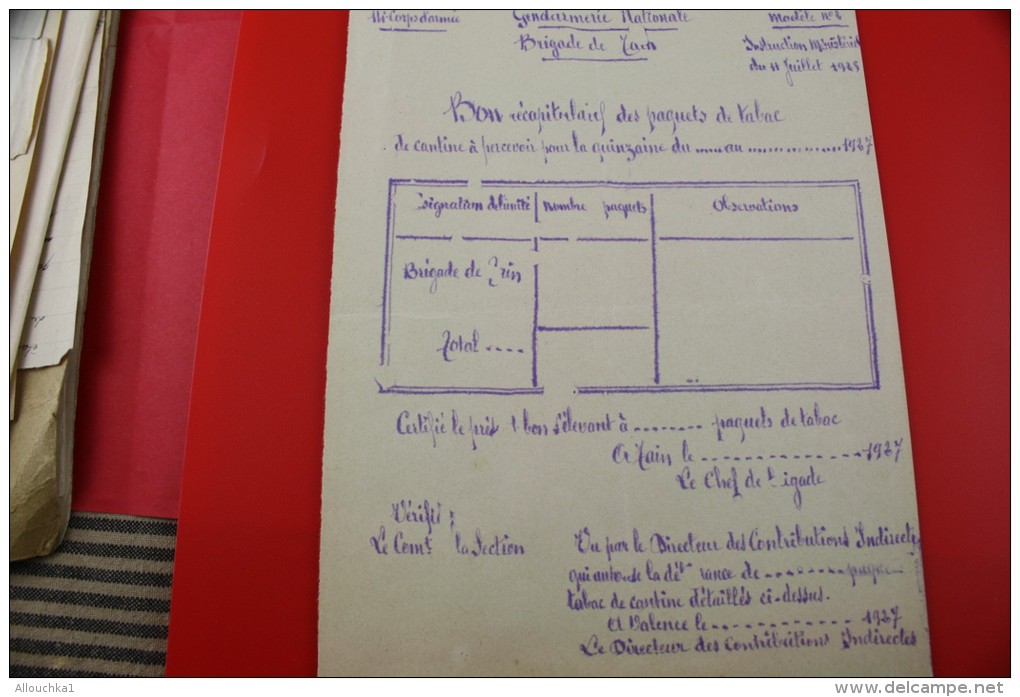 Corps d'armée Gendarmerie Nationale Modèle n° 6
Brigade de Instruction Ministériel
du 11 Juillet 1925
Bon récapitulatif des paquets de tabac
de cantine à percevoir pour la quinzaine du ...... au .............. 1927
signation de l'unité Nombre paquets Observations
Brigade de
Total ....
Certifié le prés t bon s'élevant à ........ paquets de tabac
A Tain le ................ 1927
Le Chef de igade
Vérifié :
Le Comt la Section
Vu par le Directeur des Contributions Indirecte
qui autorise la dél rance de ........ paque
tabac de cantine détaillés ci-dessus.
A Valence le ............ 1927
Le Directeur des Contributions Indirectes
Allouchka1
www.delcampe.net